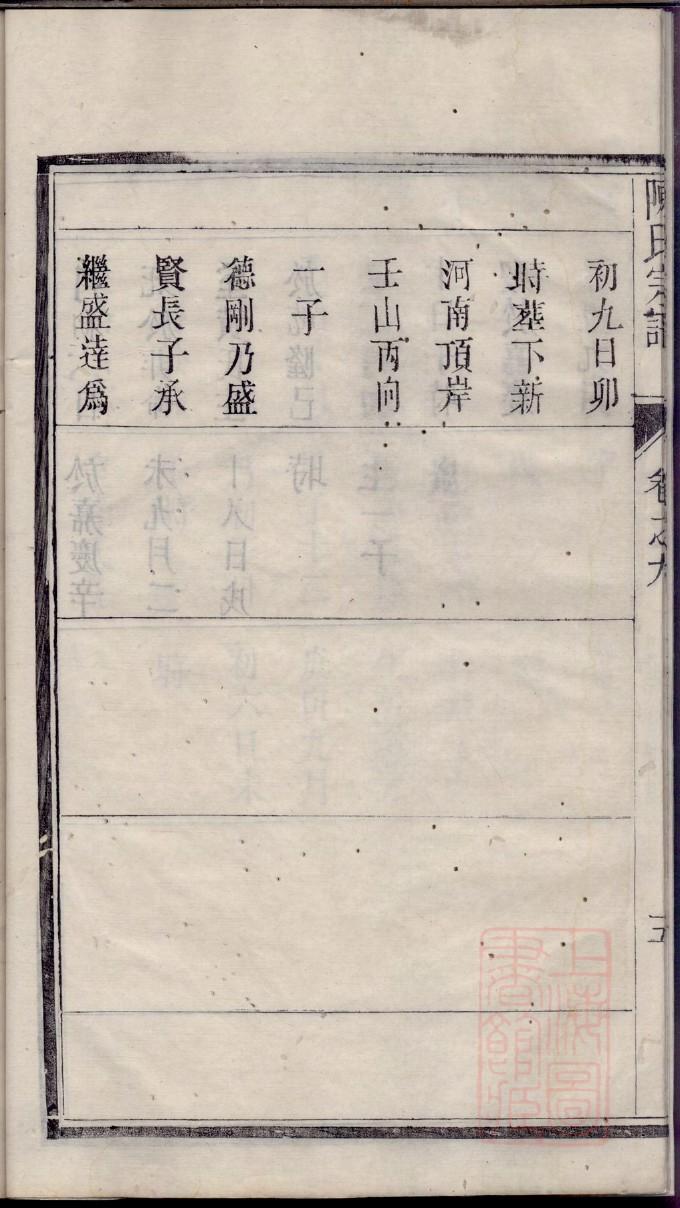 陳氏宗譜
卷之九
五
初九日卯
時塟下新
河南頂岸
壬山丙向
一子
德剛乃盛
賢長子承
繼盛達爲
上海圖書館藏